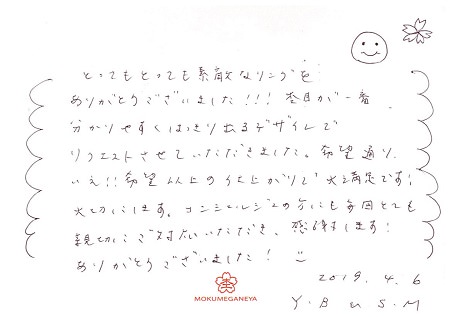 とってもとっても素敵なリングを
ありがとうございました!!! 杢目が一番
分かりやすくはっきり出るデザインで
リクエストさせていただきました。希望通り、
いえ!!希望以上の仕上がりで大満足です!
大切にします。コンシェルジュの方にも毎回とても
親切にご対応いただき、感謝します!
ありがとうございました!
2019.4.6
Y.B S.M
MOKUMEGANEYA